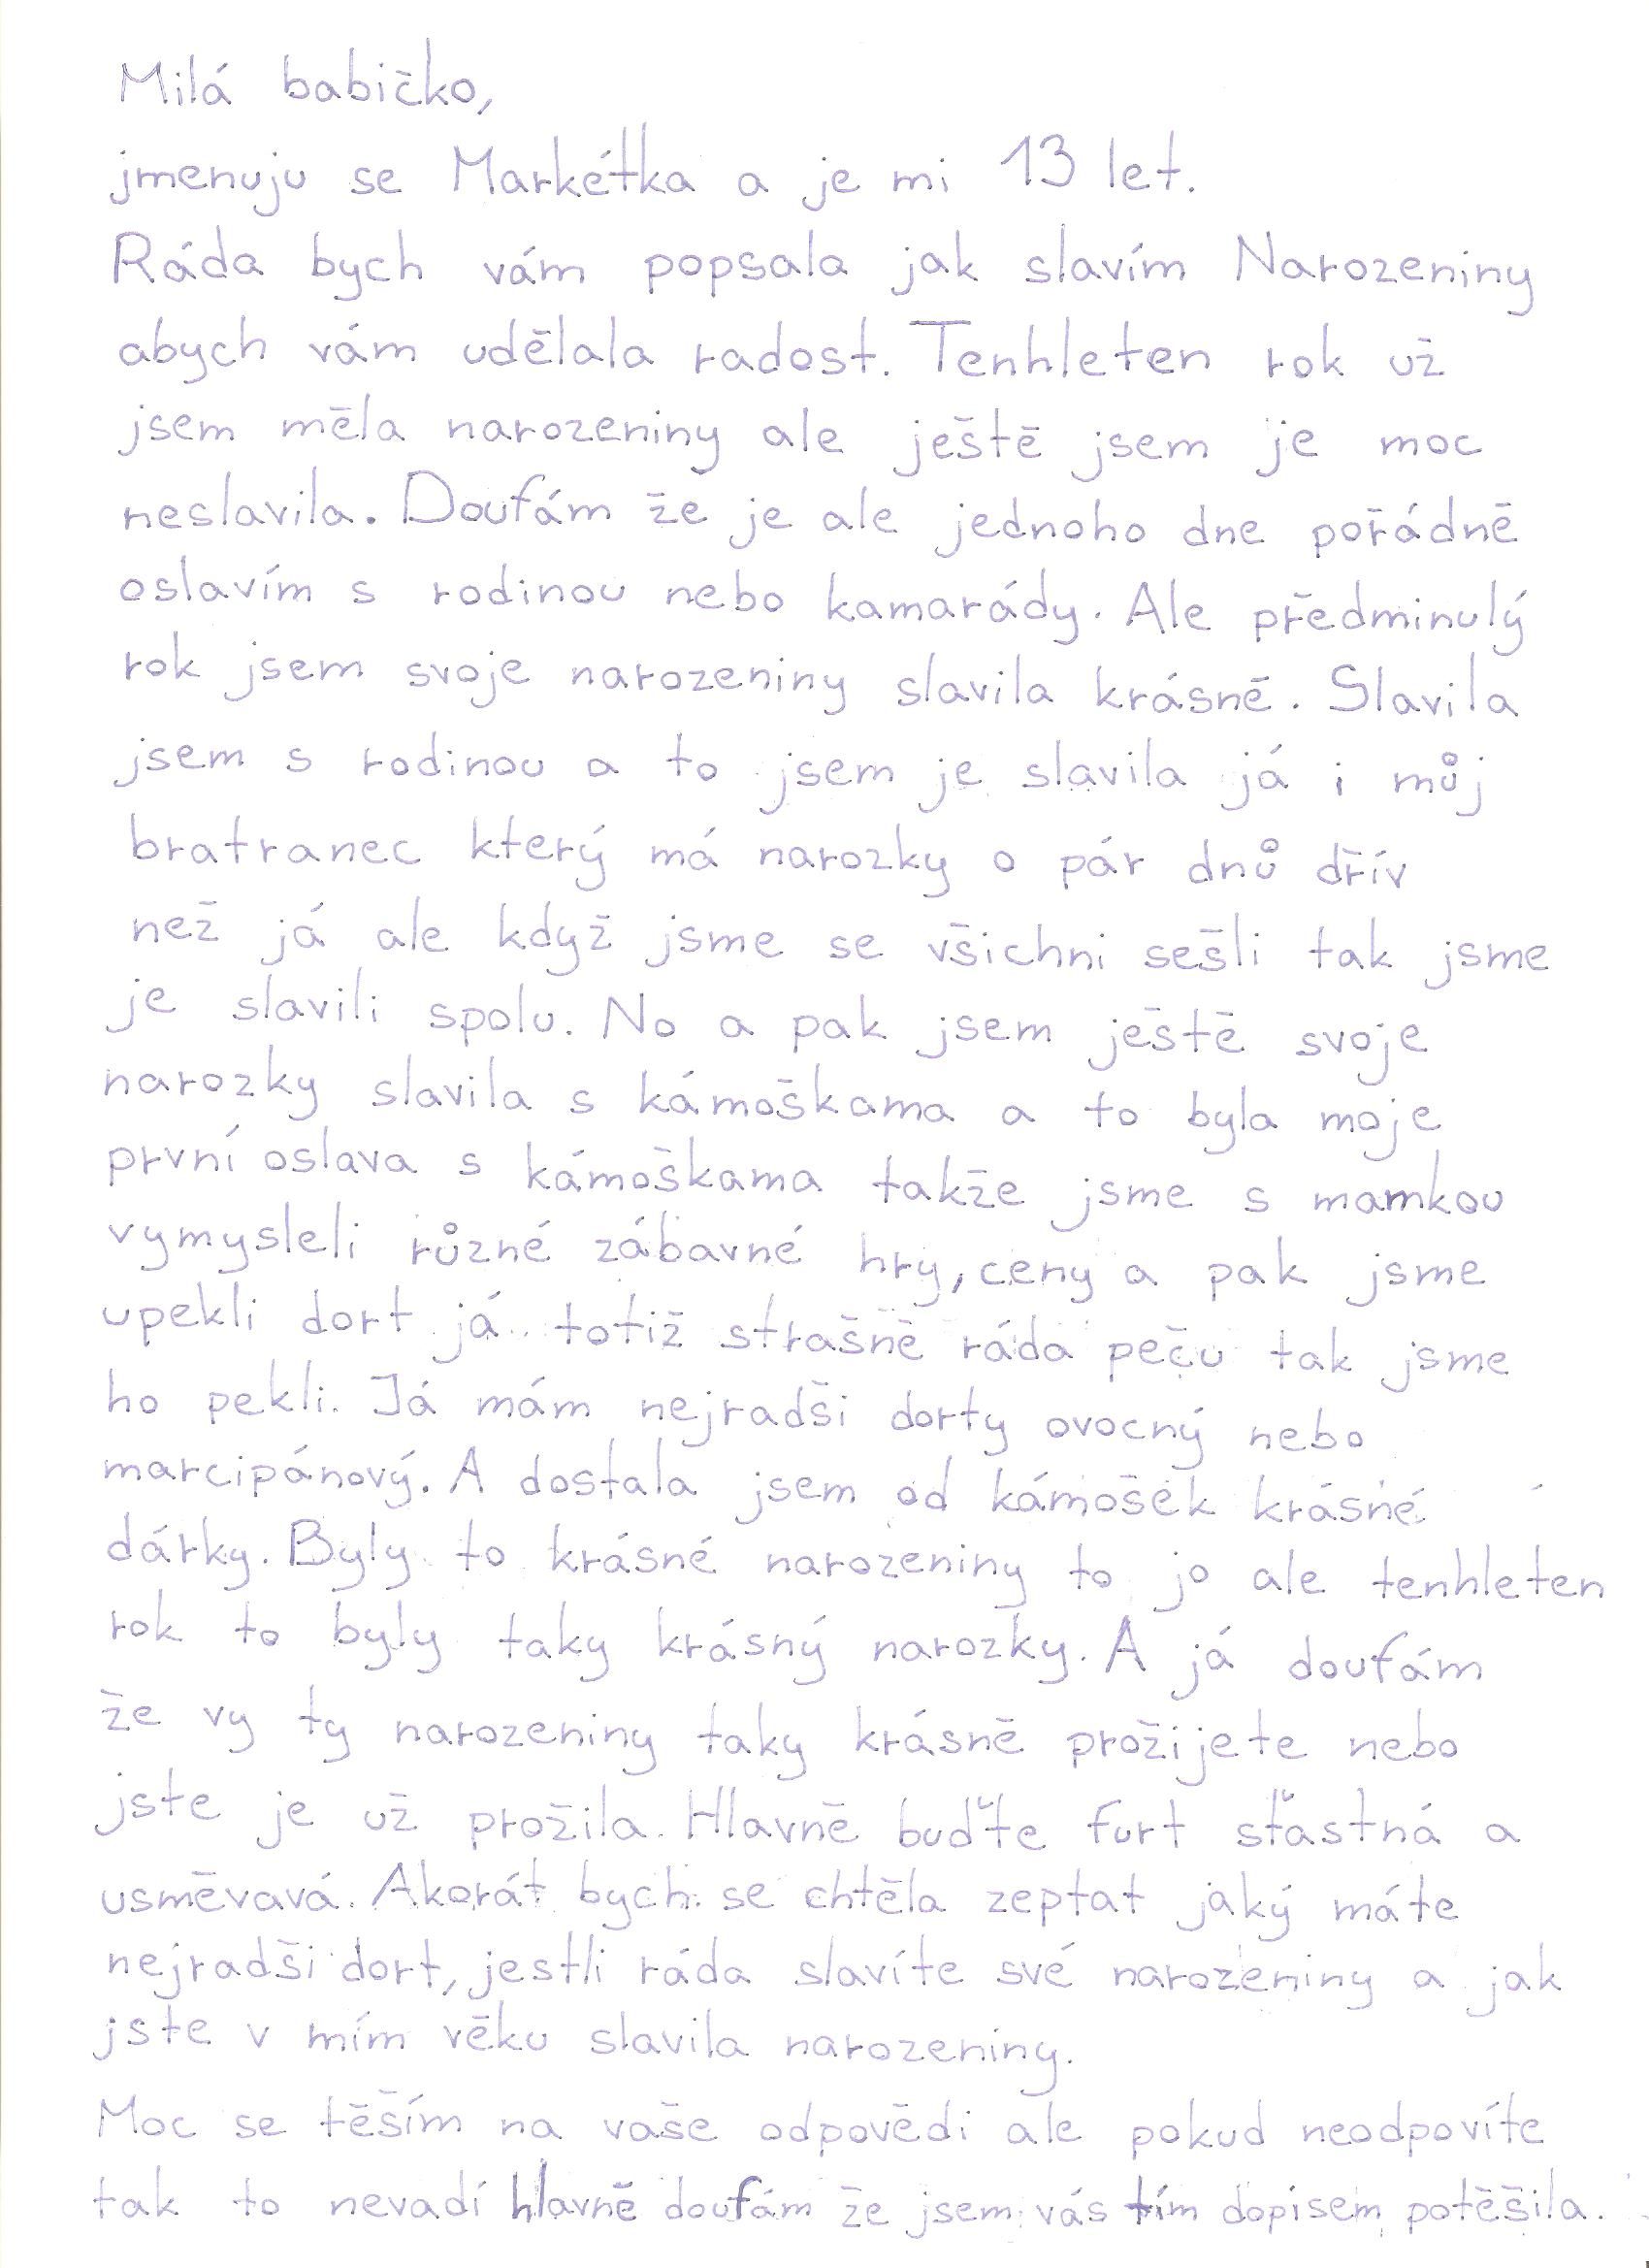 Milá babičko,
jmenuju se Markétka a je mi 13 let.
Ráda bych vám popsala jak slavím Narozeniny
abych vám udělala radost. Tenhleten rok už
jsem měla narozeniny ale ještě jsem je moc
neslavila. Doufám že je ale jednoho dne pořádně
oslavím s rodinou nebo kamarády. Ale předminulý
rok jsem svoje narozeniny slavila krásně. Slavila
jsem s rodinou a to jsem je slavila já i můj
bratranec který má narozky o pár dnů dřív
než já ale když jsme se všichni sešli tak jsme
je slavili spolu. No a pak jsem ještě svoje
narozky slavila s kámoškama a to byla moje
první oslava s kámoškama takže jsme s mamkou
vymysleli různé zábavné hry, ceny a pak jsme
upekli dort já totiž strašně ráda peču tak jsme
ho pekli. Já mám nejradši dorty ovocný nebo
marcipánový. A dostala jsem od kámošek krásné
dárky. Byly to krásné narozeniny to jo ale tenhleten
rok to byly taky krásný narozky. A já doufám
že vy ty narozeniny taky krásně prožijete nebo
jste je už prožila. Hlavně buďte furt šťastná a
usměvavá. Akorát bych se chtěla zeptat jaký máte
nejradši dort, jestli ráda slavíte své narozeniny a jak
jste v mím věku slavila narozeniny.
Moc se těším na vaše odpovědi ale pokud neodpovíte
tak to nevadí hlavně doufám že jsem vás tím dopisem potěšila.